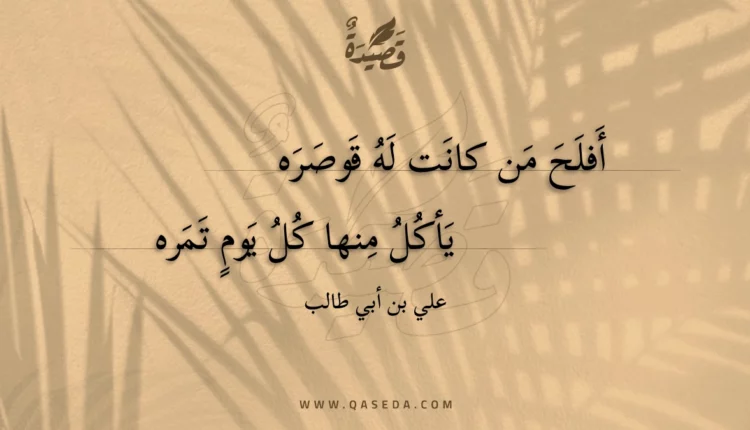 قَصِيْدَةٌ
أَفلَحَ مَن كانَت لَهُ قَوصَرَه
يَأكُلُ مِنها كُلُ يَومٍ تَمَره
علي بن أبي طالب
WWW.QASEDA.COM